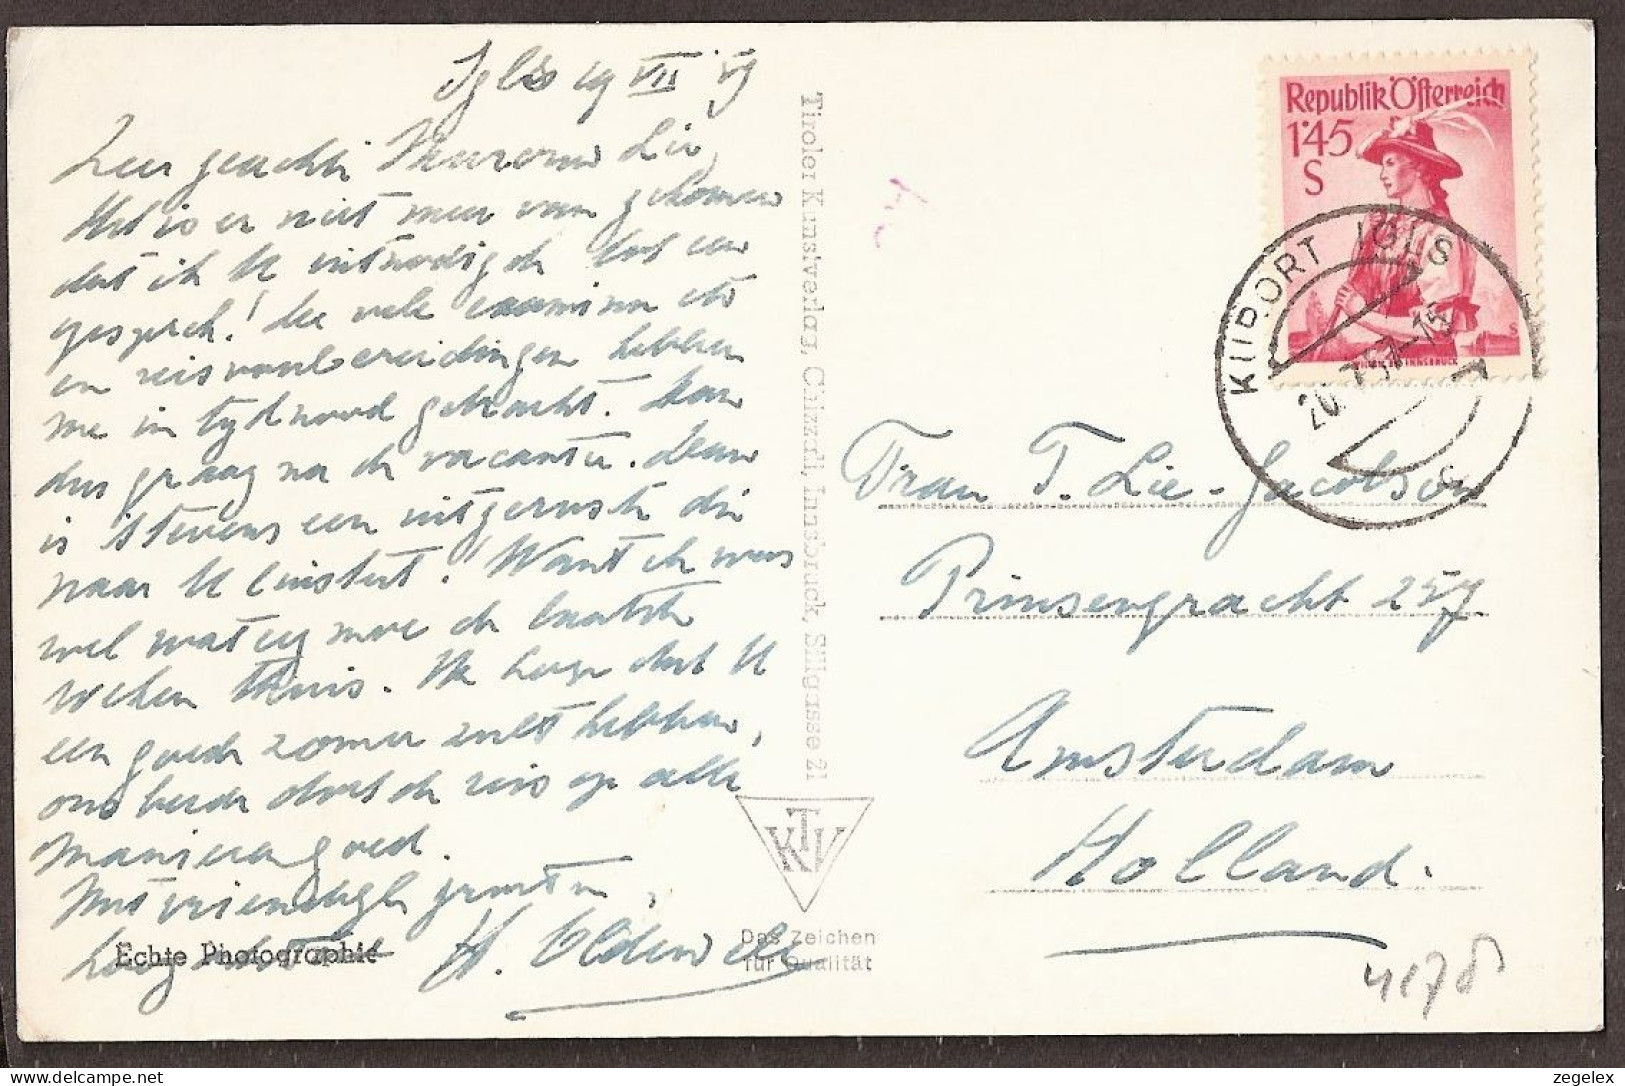 Igls 19 VII 57
Zeer geachte Mevrouw Lie,
Het is er niet meer van gekomen
dat ik U uitnodigde tot een
gesprek! De vele examens etc
en reisvoorbereidingen hebben
me in tijdnood gebracht. Kom
dus graag na de vacantie. Daar
is 'stevens een uitgeruste die
naar U luistert! Want ik was
wel wat erg moe de laatste
weken thuis. Ik hoop dat U
een goede zomer zult hebben,
ons beide doet de reis op alle
manieren goed.
Met vriendelijke groeten,
hoogachtend
Echte Photographie
Tiroler Kunstverlag, Chizzali, Innsbruck, Sillgasse 21
KTV
Das Zeichen
für Qualität
Republik Österreich
1'45
S
WILTEN BEI INNSBRUCK
KURORT IGLS
20. 7. 57-15
c
Frau T. Lie-Jacobson
Prinsengracht 257
Amsterdam
Holland.
4178
zegelex